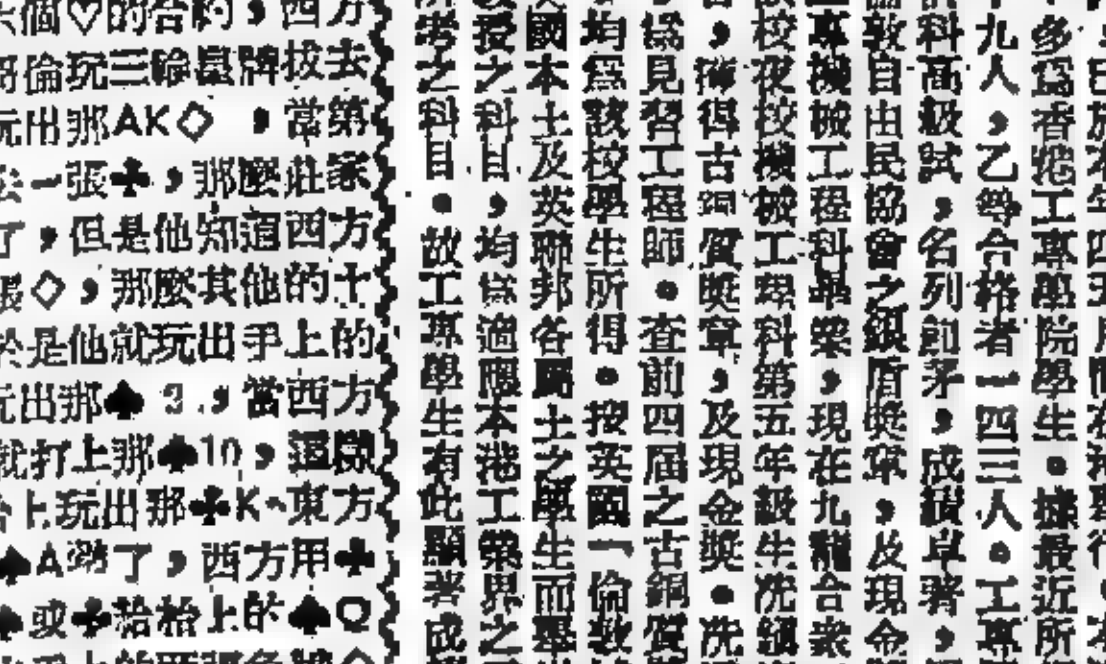 個♡的合約，西方
倫玩三輪墨牌拔去
玩出那AK◇，當第
一張♣，那麼莊家
了，但是他知道西方
張◇，那麼其他的十
於是他就玩出手上的
玩出那♠3，當西方
就打上那♠10，還
上玩出那♣K，東方
♠A 了，西方用♣
♠或♣給枱上的♠Q
多爲香港工專學院學生。據最近所
九人，乙等合格者一四三人。工專
科高級試，名列前茅，成績卓著，
敦自由民協會之銀盾獎章，及現金
專機械工程科畢業，現在九龍合衆
校夜校機械工程科第五年級生冼鎮
，獲得古銅質獎章，及現金獎。冼
爲見習工程師。查前四屆之古銅質
均爲該校學生所得。按英國「倫敦
國本土及英聯邦各屬土之學生而舉
授之科目，均爲適應本港工業界之
考之科目。故工專學生有此顯著成